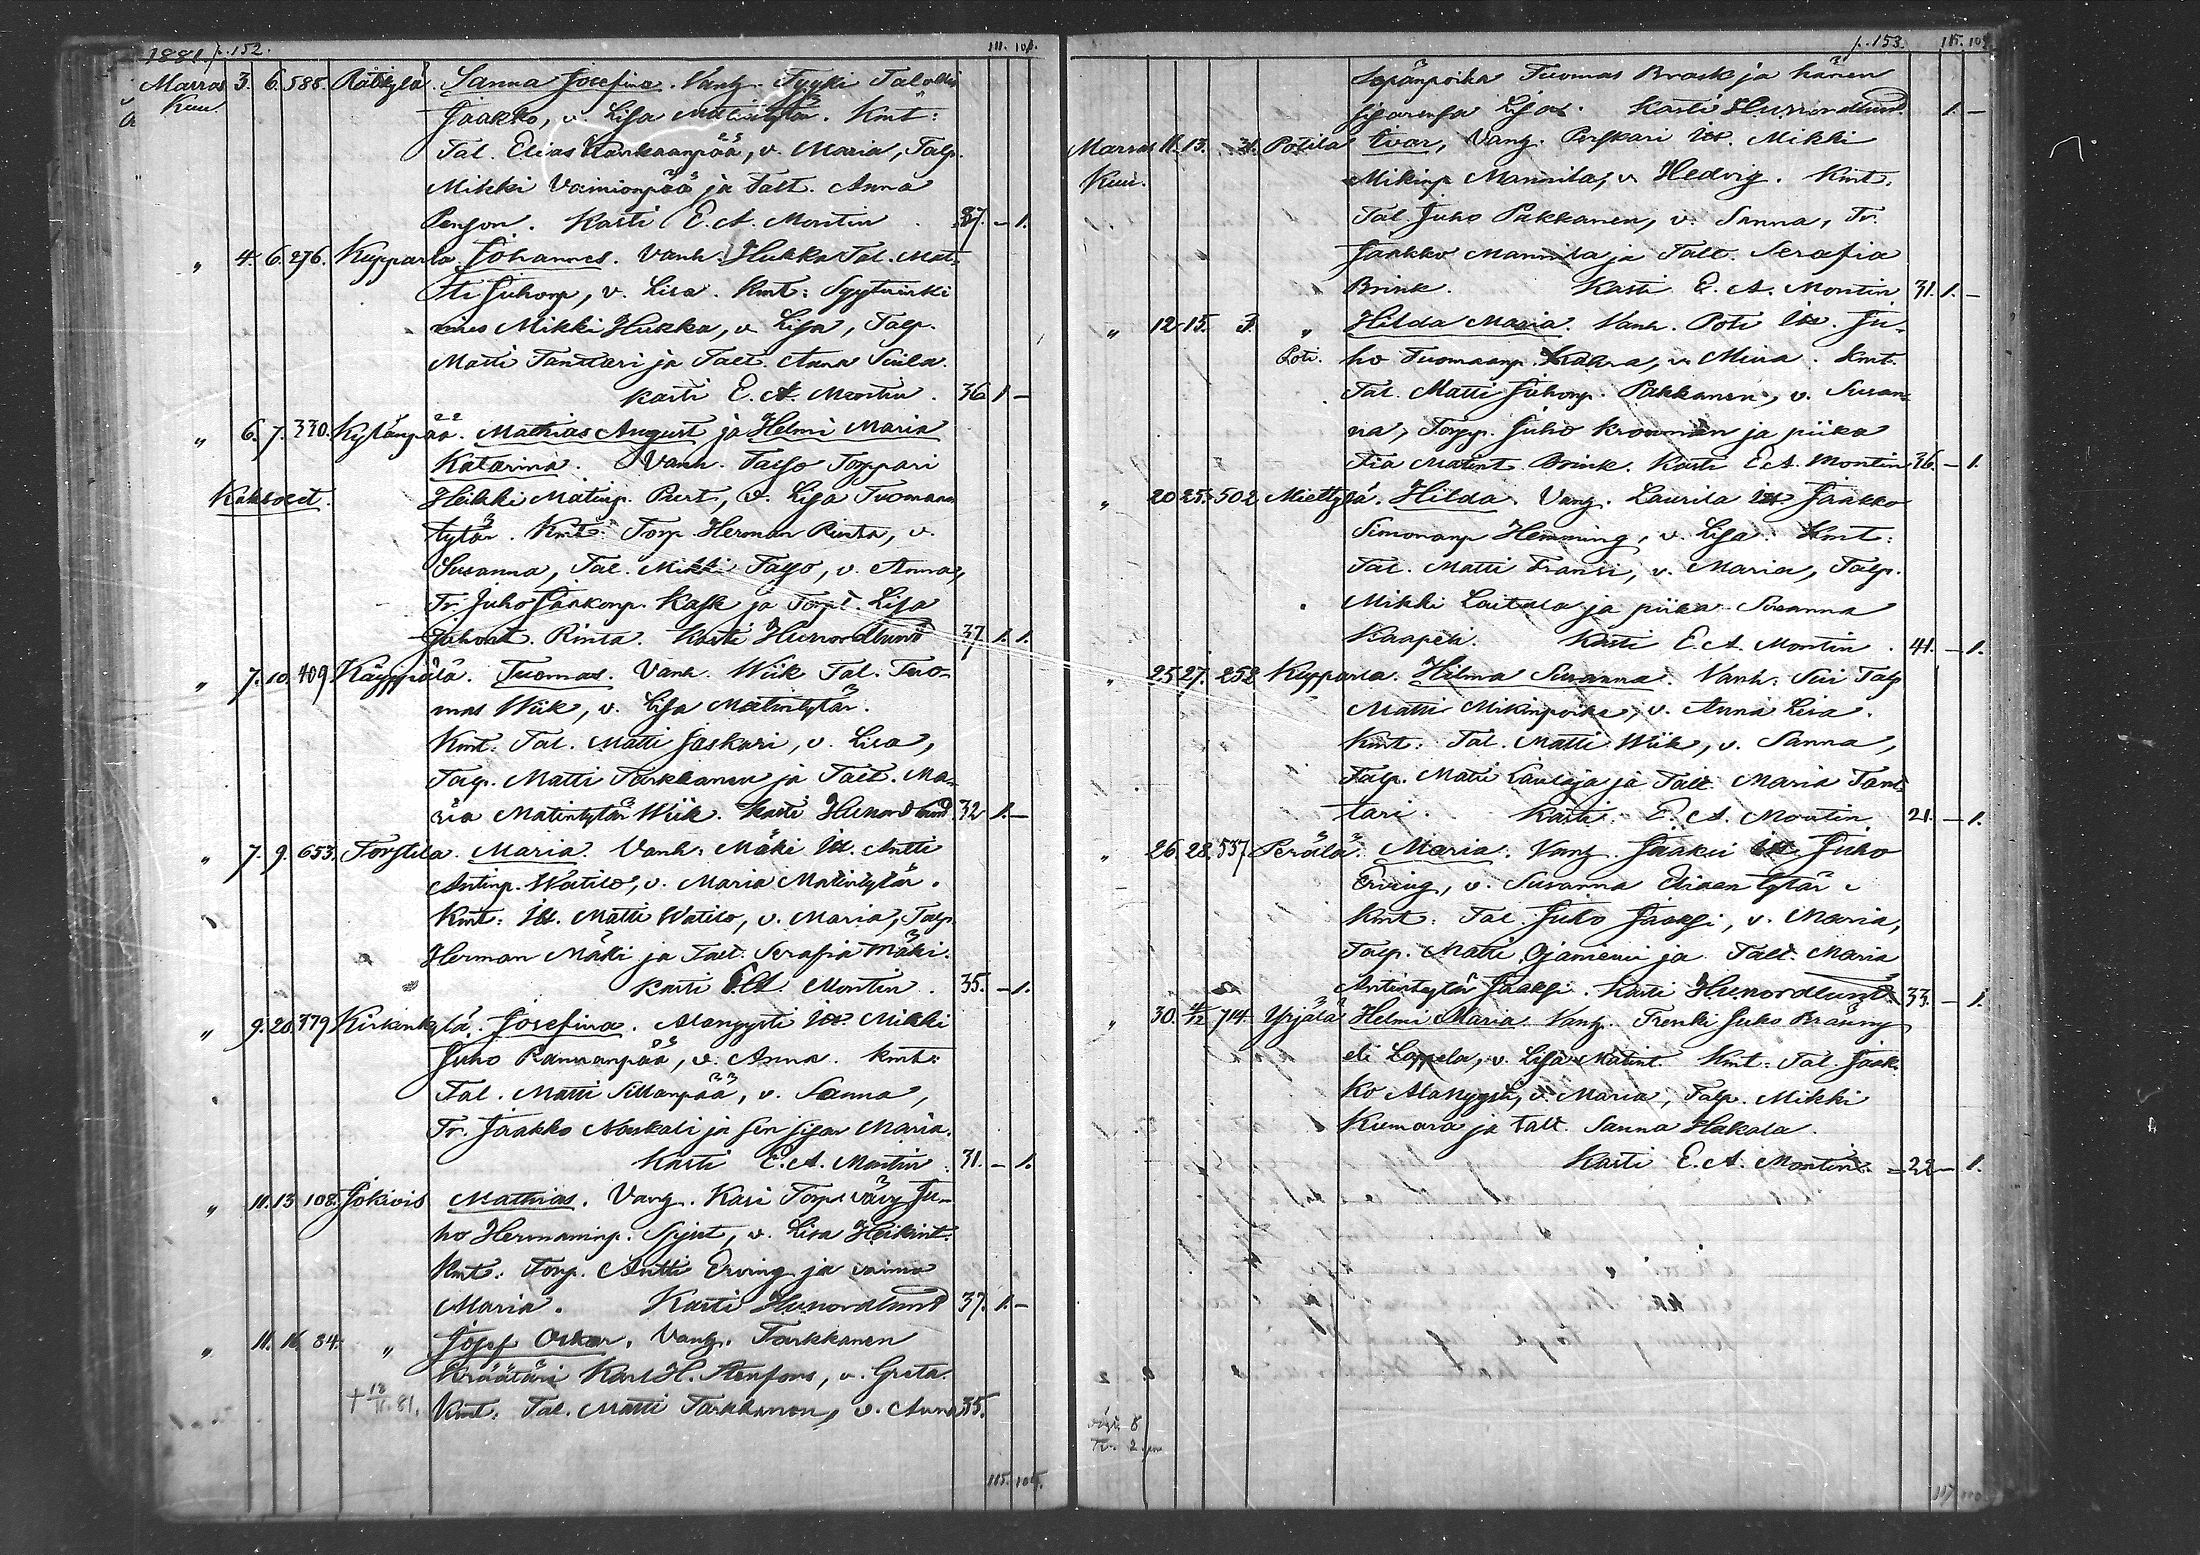 1881. p. 152. 111. 101.
Marras Kuu. 3. 6. 585. Rätkylä. Sanna Josefina. Vanh. Tyyki Talollis
Jaakko, v. Lisa Matintytär. Kmt:
Tal. Elias Karkaanpää, v. Maria, Talp.
Mikki Vainionpää ja Talt. Anna
Penson. Kasti E. A. Montin 37. – 1.
„ 4. 6. 276. Kupparla. Johannes. Vanh. Hukka Tal. Mat-
ti Juhonp, v. Lisa. Kmt: Syytinki
mies Mikki Hukka, v. Lisa, Talp.
Matti Tanttari ja Talt. Anna Suila.
Kasti E. A. Montin. 36 1 –
„ 6. 7. 330. Kylänpää. Mathias August ja Helmi Maria
Katarina. Vanh. Torppari
Kaksoset. Heikki Matinp. v. Lisa Tuomaan
tytär. Kmt: Torp. Herman Rinta, v.
Susanna, Tal. Mikki v. Anna,
Tr. Juho Jaakonp. Kask ja Torpt. Lisa
Juhont. Rinta. Kasti Hunnordlund 37. 1. 1.
„ 7. 10. 409 Käyppälä. Tuomas. Vanh. Wiik Tal. Tuo-
mas Wiik, v. Lisa Matintytär.
Kmt. Tal. Matti Jaskari, v. Lisa,
Talp. Matti Tarkkanen ja Talt. Ma-
ria Matintytär Wiik. Kasti Hunordlund 32 1. –
„ 7. 9. 653. Torstila. Maria. Vanh. Mäki Itt. Antti
Antinp. Watilo, v. Maria Matintytär.
Kmt: Itt. Matti Watilo, v. Maria, Talp.
Herman Mäki ja Talt. Serafia Mäki.
Kasti E. A. Montin. 35. – 1.
„ 9. 20. 379 Kirkonkylä. Josefina. Alanyysti Itt. Mikki
Juho Pannanpää, v. Anna. Kmt:
Tal. Matti Sillanpää, v. Sanna,
Tr. Jaakko Naskali ja sen sisar Maria.
Kasti E. A. Montin. 31. – 1.
„ 11. 13 108. Jokivis Mathias. Vanh. Kasi Torp. vävy Ju-
ho Hermaninp. Spjut, v. Lisa Heikint.
Kmt: Torp. Antti Erving ja vaimo
Maria. Kasti Hunordlund 37. 1. –
„ 11. 16. 84. „ Josef Oskar. Vanh. Tarkkanen
Kräätäri Karl H. Stenfors, v. Greta.
† 18/11. 81. Kmt: Tal. Matti Tarkkanen, v. Anna 35.
115. 104.
p. 153. 115. 104
Sepänpoika Tuomas Brask ja hänen
sisarensa Lisa. Kasti Hunnordlund 1. –
Marras Kuu. 11. 13. 31. Potila Ivar, Vanh. Itt. Mikki
Mikinp Mannila, v. Hedvig. Kmt.
Tal. Juho Pakkanen, v. Sanna, Tr.
Jaakko Mannila ja Talt. Serafia
Brink. Kasti E. A. Montin. 31. 1. –
„ 12. 15. 3. „ Hilda Maria. Vanh. Poti Itt. Ju-
Poti. ho Tuomaanp. v. Miina. Kmt.
Tal. Matti Juhonp. Pakkanen, v. Susan-
na, Torpp. Juho Kronman ja piika
Fia Matint. Brink. Kasti E. A. Montin 36. – 1.
„ 20. 25. 502 Miettylä. Hilda. Vanh. Laurila Itt. Jaakko
Simonanp Hemming, v. Lisa. Kmt:
Tal. Matti Fransi, v. Maria, Talp.
Mikki Laitala ja piika Susanna
Kaapeli. Kasti E. A. Montin. 41. – 1.
„ 25. 27. 252 Kupparla. Hilma Susanna. Vanh. Talp
Matti Mikinpoika, v. Anna Lisa.
Kmt: Tal. Matti Wiik, v. Sanna,
Talp. Matti Laulaja ja Talt. Maria Tant-
tari. Kasti. E. A. Montin 21. – 1.
„ 26. 28. 537. Perälä. Maria. Vanh. Jaakii Itt. Juho
Erving, v. Susanna Eliaantytär.
Kmt. Tal. Juho v. Maria,
Talp. Matti Ojaniemi ja Talt. Maria
Antintytär Kasti Hunordlund. 33. – 1.
„ 30. 4/12 714. Yrjälä Helmi Maria. Vanh. Trenki Juho Bränny
eli Lappela, v. Lisa Matint. Kmt. Tal. Jaak-
ko Alanyysti, v. Maria, Talp. Mikki
Kiemara ja talt. Sanna Hakola.
Kasti E. A. Montin. 22 – 1.
117 110